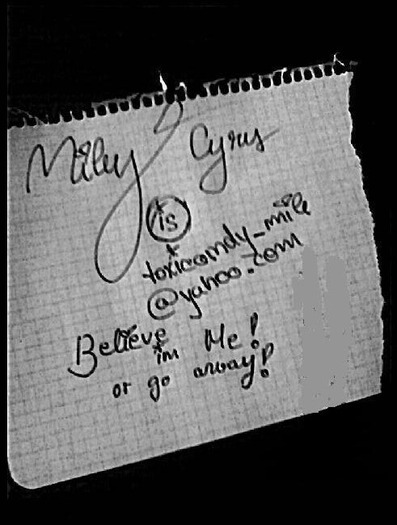 Miley Cyrus
is
toxicandy_mile
@yahoo.com
Believe
im Me!
or go away!